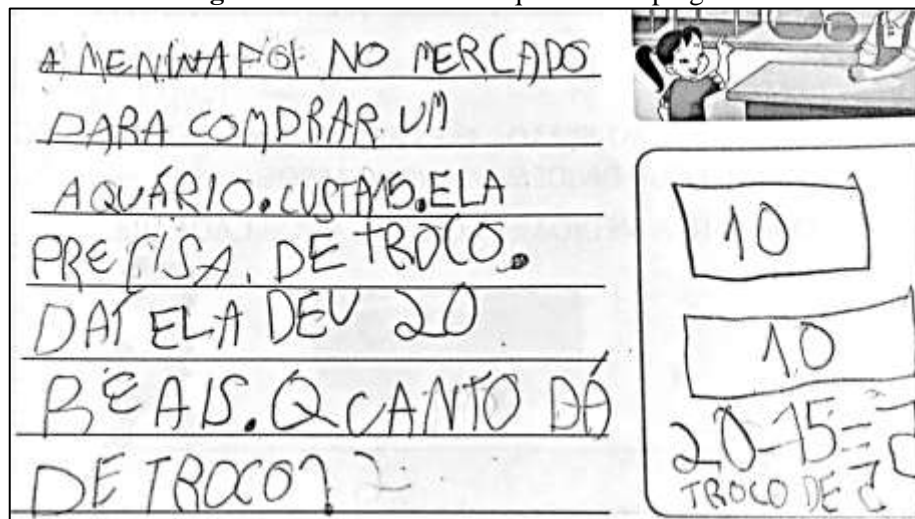 A MENINA FOI NO MERCADO
PARA COMPRAR UM
AQUÁRIO. CUSTA 15. ELA
PRECISA. DE TROCO.
DAÍ ELA DEU 20
REAIS. QCANTO DÁ
DE TROCO?
10
10
20-15=
TROCO DE